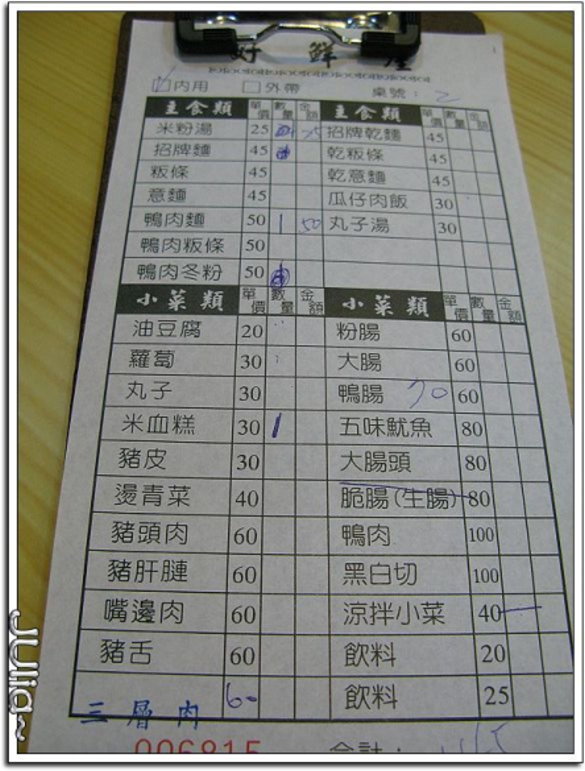 好鮮座
內用 外帶 桌號： 2
主食類 單價 數量 金額 主食類 單價 數量 金額
米粉湯 25 25 招牌乾麵 45
招牌麵 45 乾粄條 45
粄條 45 乾意麵 45
意麵 45 瓜仔肉飯 30
鴨肉麵 50 1 50 丸子湯 30
鴨肉粄條 50
鴨肉冬粉 50
小菜類 單價 數量 金額 小菜類 單價 數量 金額
油豆腐 20 粉腸 60
蘿蔔 30 大腸 60
丸子 30 鴨腸 70 60
米血糕 30 1 五味魷魚 80
豬皮 30 大腸頭 80
燙青菜 40 脆腸(生腸) 80
豬頭肉 60 鴨肉 100
豬肝腱 60 黑白切 100
嘴邊肉 60 涼拌小菜 40
豬舌 60 飲料 20
三層肉 60 飲料 25
006815 合計：
Julia~